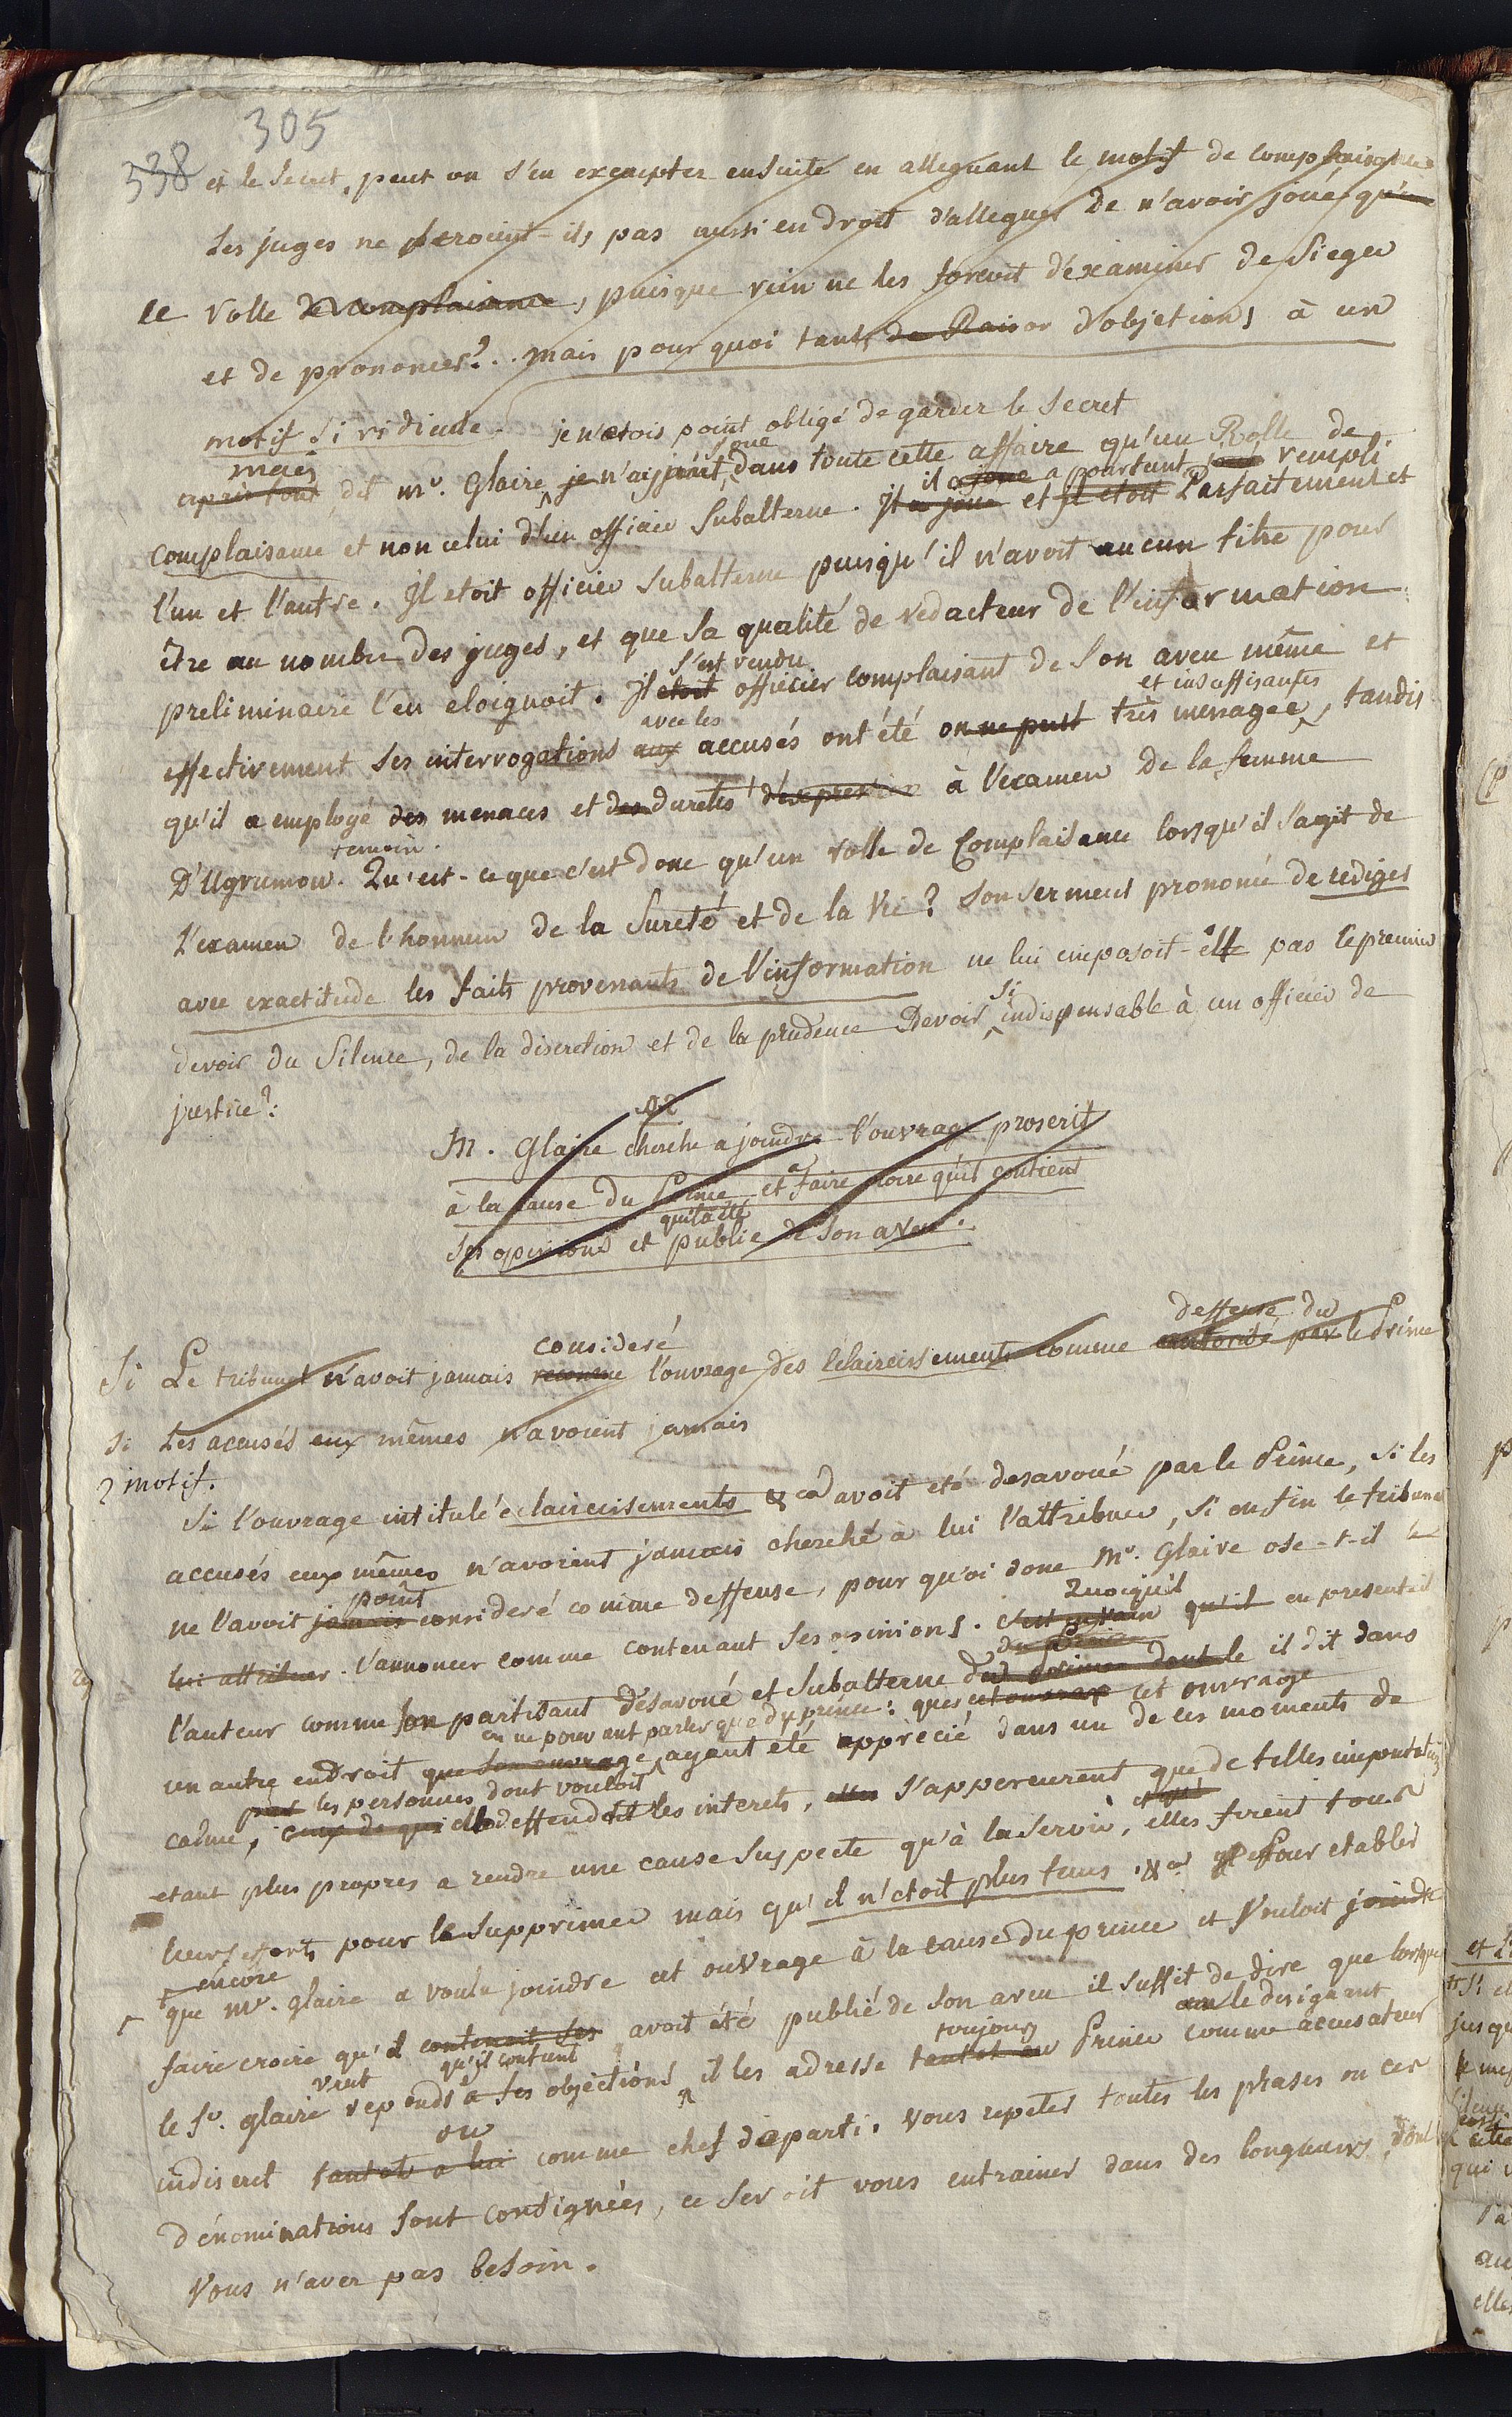 305
538 et le secret, peut on s'en excempter ensuite en alleguant le motif de complaisance
Les juges ne seroient-ils pas aussi en droit d'alleguer de n'avoir joué qu'un
le rolle de complaisance, puisque rien ne les forcoit d'examiner de Sieger
et de prononcer? .. mais pour quoi tant de Raison d'objetions à un
motif si ridicule. je n'etois point obligé de garder le secret
mais joué
après tout dit mr. Glaire, je n'ai point dans toute cette affaire qu'un Rolle de
il a joué a pourtant joué rempli
complaisance et non celui d'un officier subalterne. Il a joué et il etoit Parfaitement et
l'un et l'autre. Il etoit officier subalterne puisqu'il n'avoit aucun titre pour
être au nombre des juges, et que sa qualité de redacteur de l'information
s'est rendu
preliminaire l'en eloignoit. Il etoit officier complaisant de son aveu même et
avec les et insuffisantes
effectivement ses interrogations aux accusés ont été on ne peut très menagée, tandis
qu'il a employé des menaces et des duretés d'expression à l'examen de la femme
temoin.
D'Ugrumow. Qu'est-ce que c'est donc qu'un rolle de Complaisance lorsqu'il s'agit de
L'examen de l'honneur de la Sureté et de la Vie? Son serment prononcé de rediger
avec exactitude les faits provenants de l'information ne lui imposoit-elle pas le premier
si
devoir du Silence, de la discretion et de la prudence Devoir indispensable à un officier de
justice?:
M. Glaire cherche a joindre l'ouvrage proscrit
à la cause du Prince et a faire croire qu'il contient
qu'il a été
ses opinions et publié de son aveu.
consideré deffense du
Si Le tribunal n'avoit jamais reconnu l'ouvrage des Eclaircissements comme autorisé par le Prince
Si Les accusés eux mêmes n'avoient jamais
2 motif.
Si l'ouvrage intitulé eclaircissements &ca avoit eté desavoué par le Prince, si les
accusés eux mêmes n'avoient jamais cherché à lui l'attribuer, si enfin le tribunal
point
ne l'avoit jamais consideré comme deffense, pour qu'oi donc Mr. Glaire ose-t-il le
Quoiqu'il
lui attribuer. L'annoncer comme contenant ses opinions. C'est en vain qu'il en presentait
du Prince
l'auteur comme son partisant désavoué et subalterne du Prince dont le il dit dans
en ne pouvant parler que du prince: que cet ouvrage cet ouvrage
un autre endroit que son ouvrage, ayant eté apprécié dans un de ces moments de
par les personnes dont vouloit
calme, ceux de qui elle deffendoit les interets, s'appercurent que de telles imputations
etant plus propres a rendre une cause suspecte qu'à la servir, elles firent tous
leurs efforts pour le supprimer mais qu'il n'etoit plus tems &ca Pour etablir
encore
que mr. glaire a voulu joindre cet ouvrage à la cause du prince et Vouloit joindre
faire croire qu'il contenoit ses avoit été publié de son aveu il suffit de dire que lorsque
veut qu'il contient toujours au le designant
le Sr. glaire reponds à ses objections il les adresse tantot au Prince comme accusateur
ou
indiscret tantot a lui comme chef de parti. Vous repeter toutes les phrases ou ces
dénominations sont consignées, ce seroit vous entrainer dans des longueurs dont
Vous n'avez pas besoin.